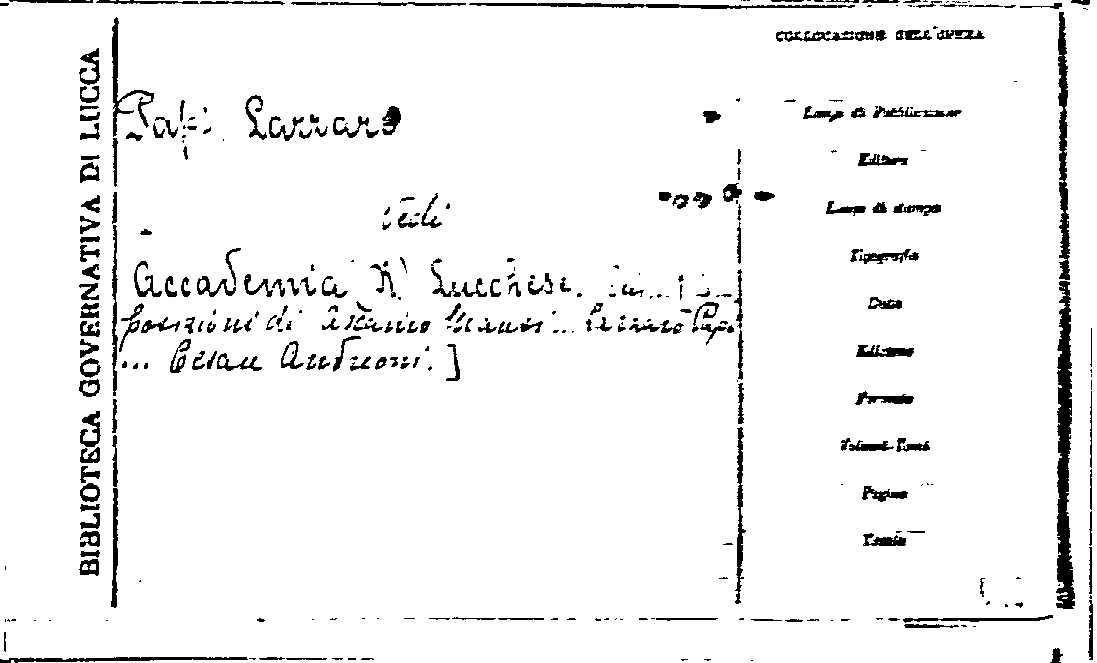 BIBLIOTECA GOVERNATIVA DI LUCCA
COLLOCAZIONE DELL'OPERA
Papi Lazzaro
vedi
Accademia R. Lucchese.
posizioni di Ascanio Mansi... Lazzaro Papi
... Cesare Andreoni.]
Luogo di Pubblicazione
Editore
Luogo di stampa
Tipografia
Data
Edizione
Formato
Volumi-Tomi
Pagine